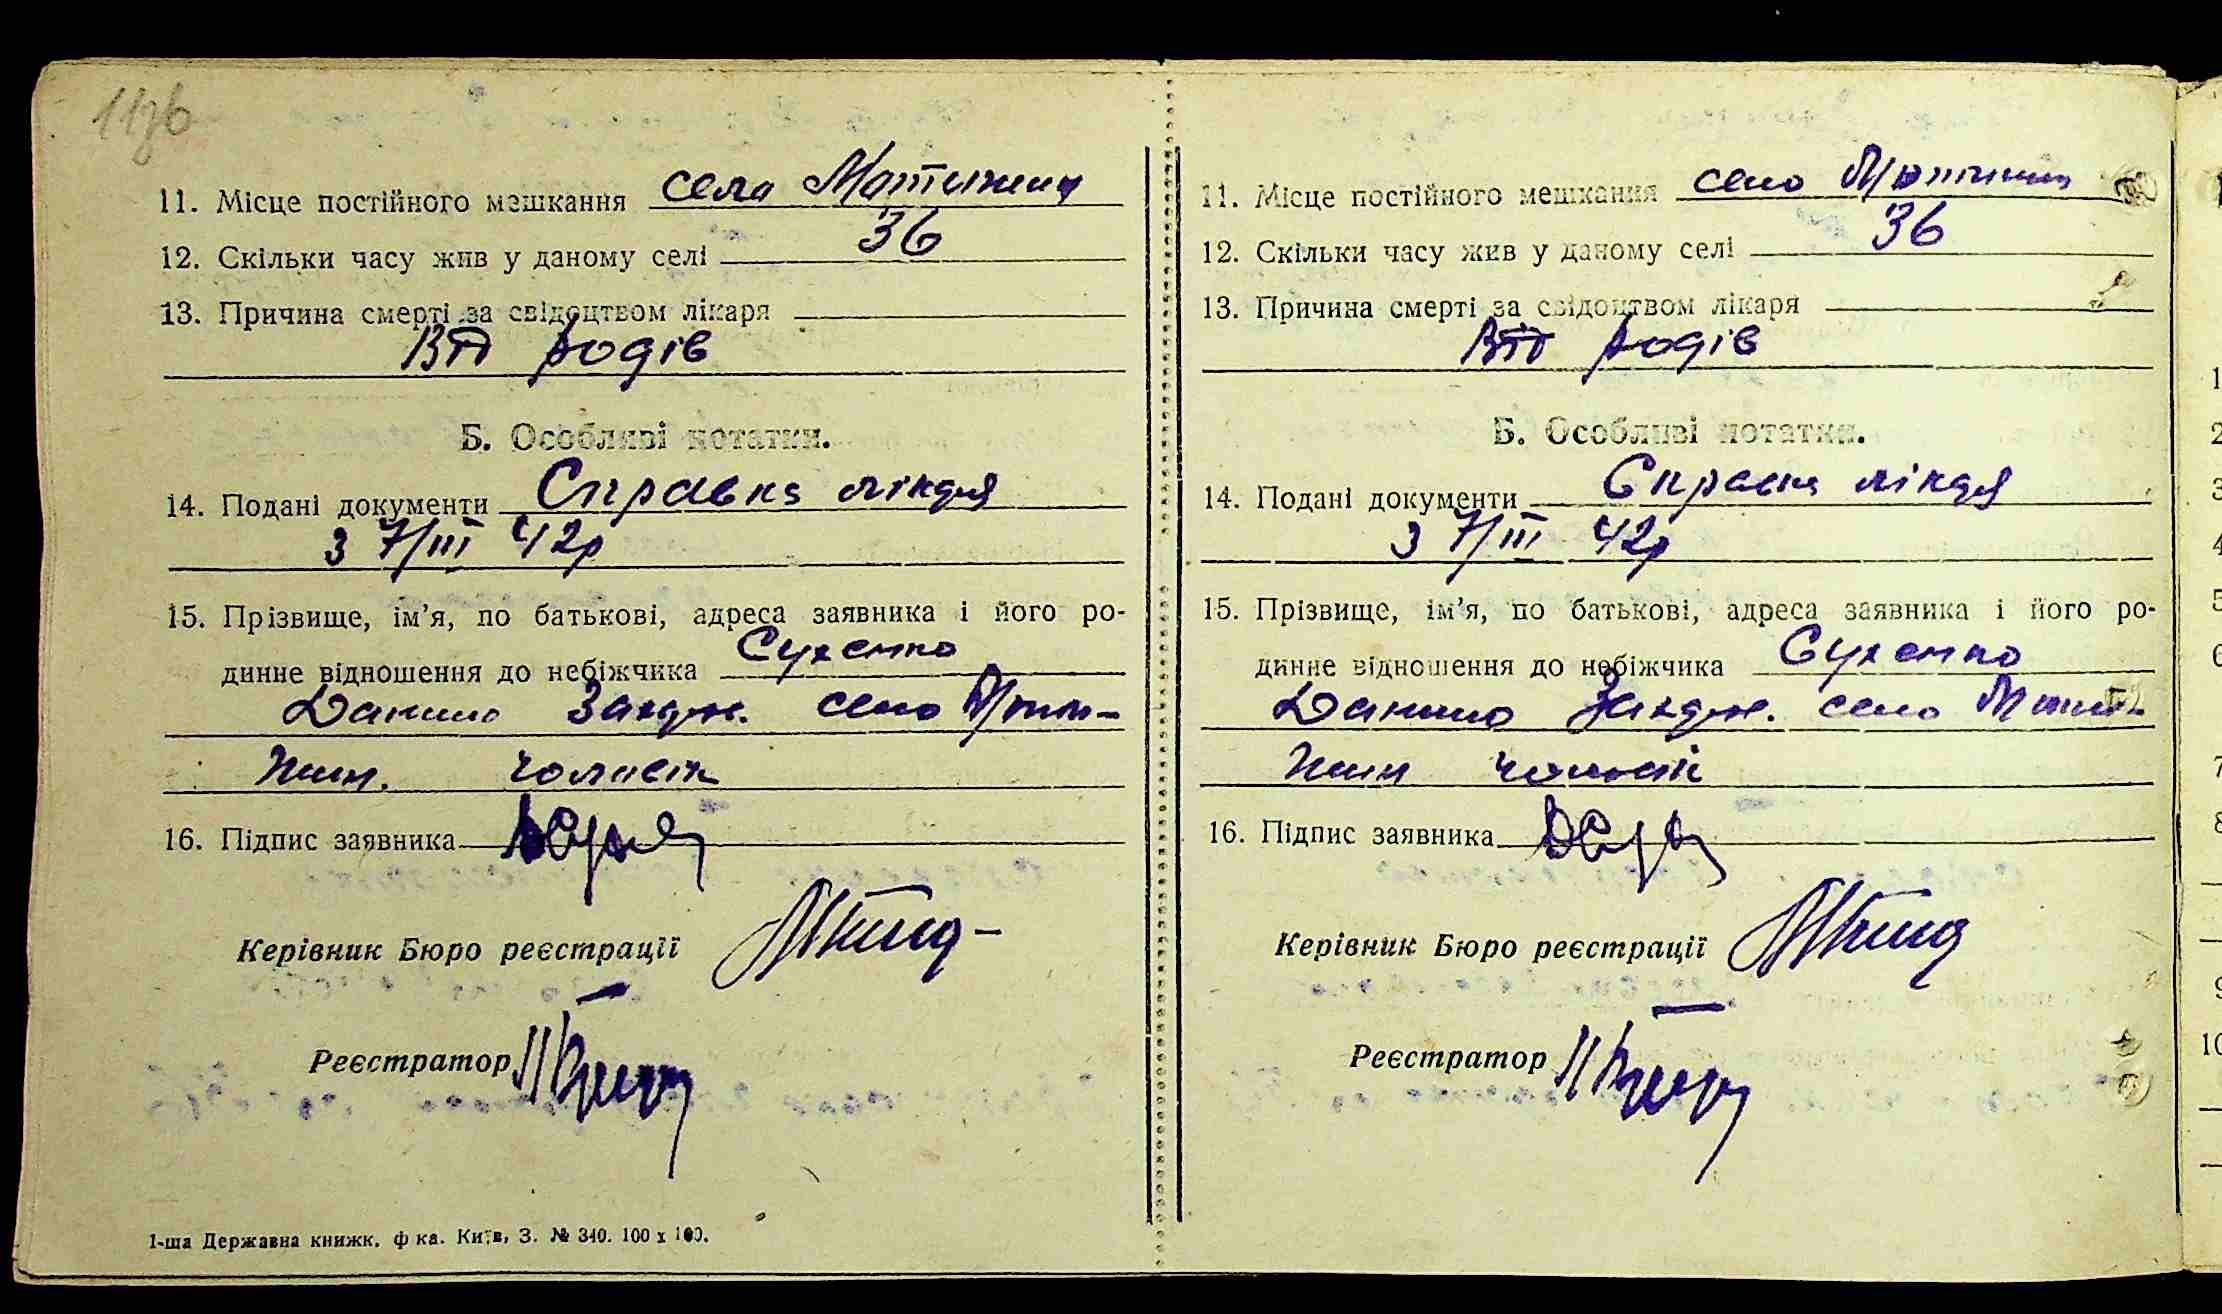 11. Місце постійного мешкання села Мотижина
12. Скільки часу жив у даному селі 36
13. Причина смерті за свідоцтвом лікаря
Від родів
Б. Особливі нотатки.
14. Подані документи Справка лікаря
з 7/III 42р
15. Прізвище, ім'я, по батькові, адреса заявника і його ро-
динне відношення до небіжчика Сухенко
Данило Захарк. село Моти-
жин. чоловік
16. Підпис заявника
Керівник Бюро реєстрації
Реєстратор
1-ша Державна книжк. ф ка. Київ, З. № 340. 100 х 100.
11. Місце постійного мешкання село Мотижин
12. Скільки часу жив у даному селі 36
13. Причина смерті за свідоцтвом лікаря
Від родів
Б. Особливі нотатки.
14. Подані документи Справка лікаря
з 7/III 42р
15. Прізвище, ім'я, по батькові, адреса заявника і його ро-
динне відношення до небіжчика Сухенко
Данило Захарк. село Моти-
жин чоловік
16. Підпис заявника
Керівник Бюро реєстрації
Реєстратор